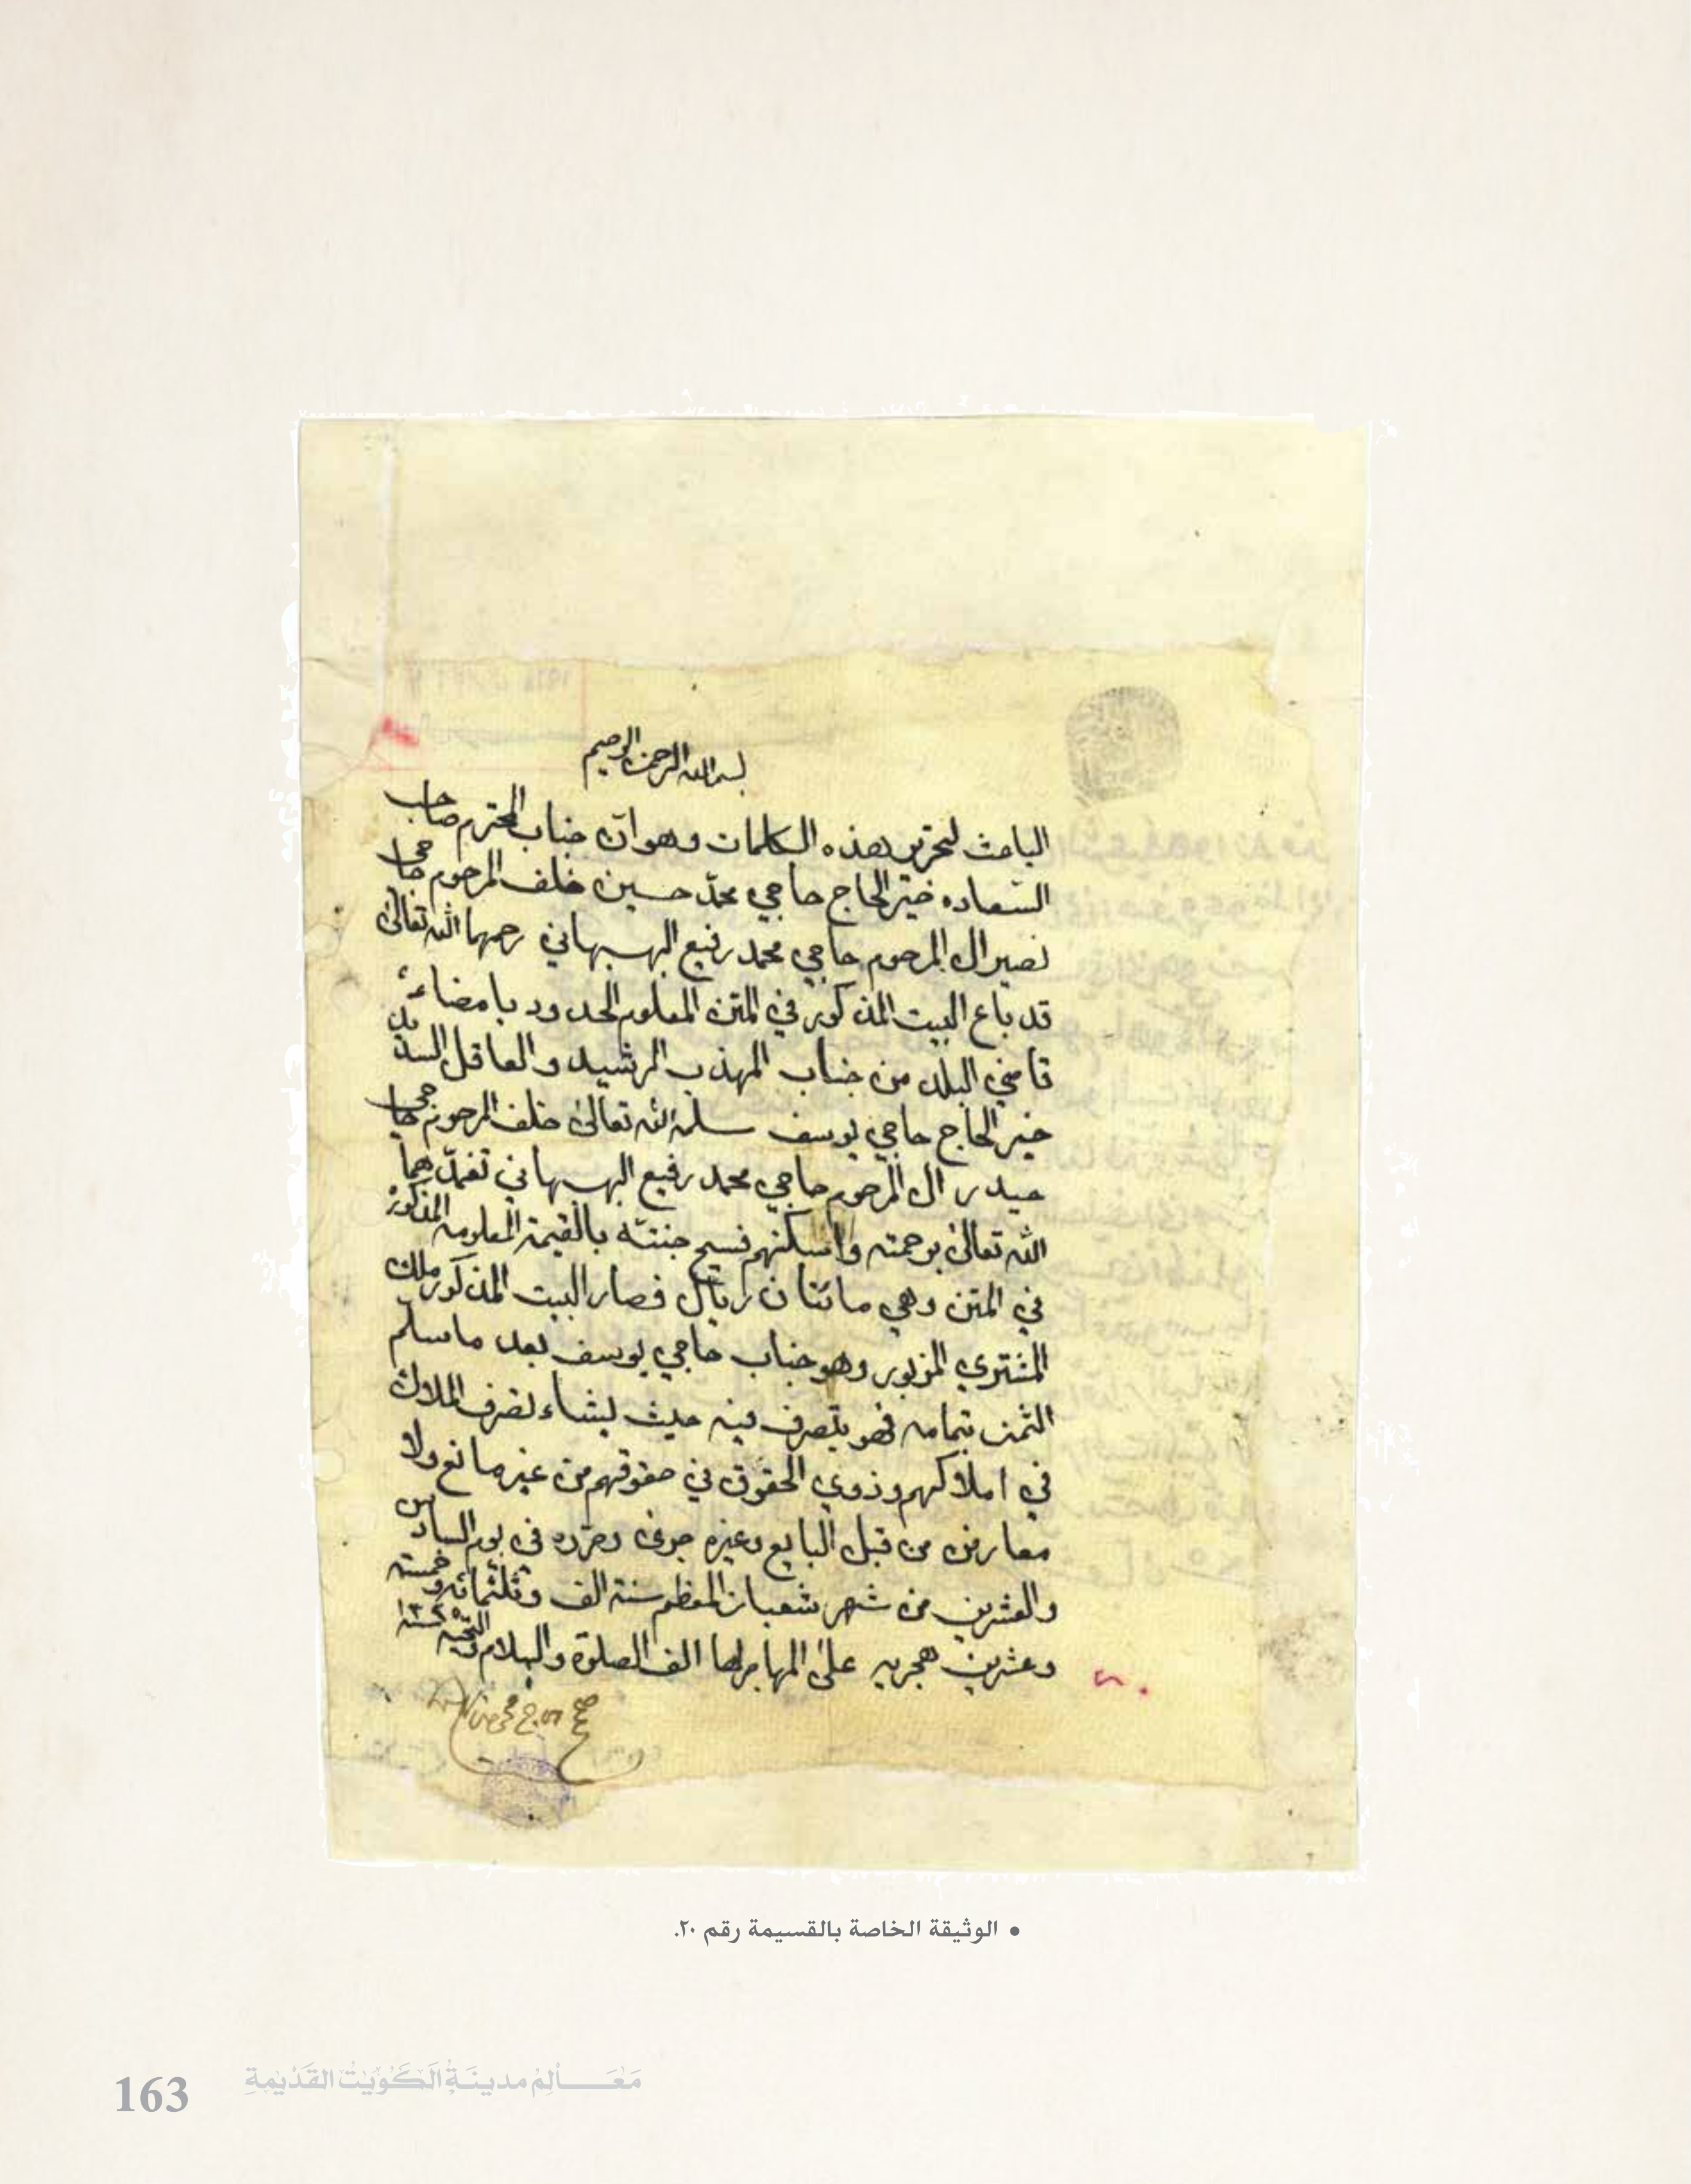 بسم الله الرحمن الرحيم
الباعث لتحرير هذه الكلمات وهو انّ جناب المحترم صاحب
السّعاده خير الحاج حاجي محمّد حسين خلف المرحوم حاجي
نصير ال المرحوم حاجي محمد رفيع البهبهاني رحمهما الله تعالى
قد باع البيت المذكور في المتن المعلوم الحدود بامضاء
قاضي البلد من جناب المهذب الرشيد والعاقل السديد
خير الحاج حاجي يوسف سلمه الله تعالى خلف المرحوم حاجي
حيدر ال المرحوم حاجي محمد رفيع البهبهاني تغمّدهما
الله تعالى برحمته واسكنهم فسيح جنتّه بالقيمة المعلومه المذكورة
في المتن وهي مائتان ريال فصار البيت المذكور ملك
المشتري المزبور وهو جناب حاجي يوسف بعد ما سلم
الثمن بتمامه فهو يتصرف فيه حيث يشاء تصرف الملاك
في املاكهم وذوي الحقوق في حقوقهم من غير مانع ولا
معارض من قبل البايع وغيره جرى وحرّر في يوم السادس
والعشرين من شهر شعبان المعظم سنة الف وثلثمائة وخمسة
وعشرين هجريه على المهاجر لها الف الصلوة والسلام والتحيّه سنة ١٣٢٥
٢٠
صح
• الوثيقة الخاصة بالقسيمة رقم ٢٠.
مَعَالِمْ مدينَةُ الكُوَيتْ القَدْيمةِ
163